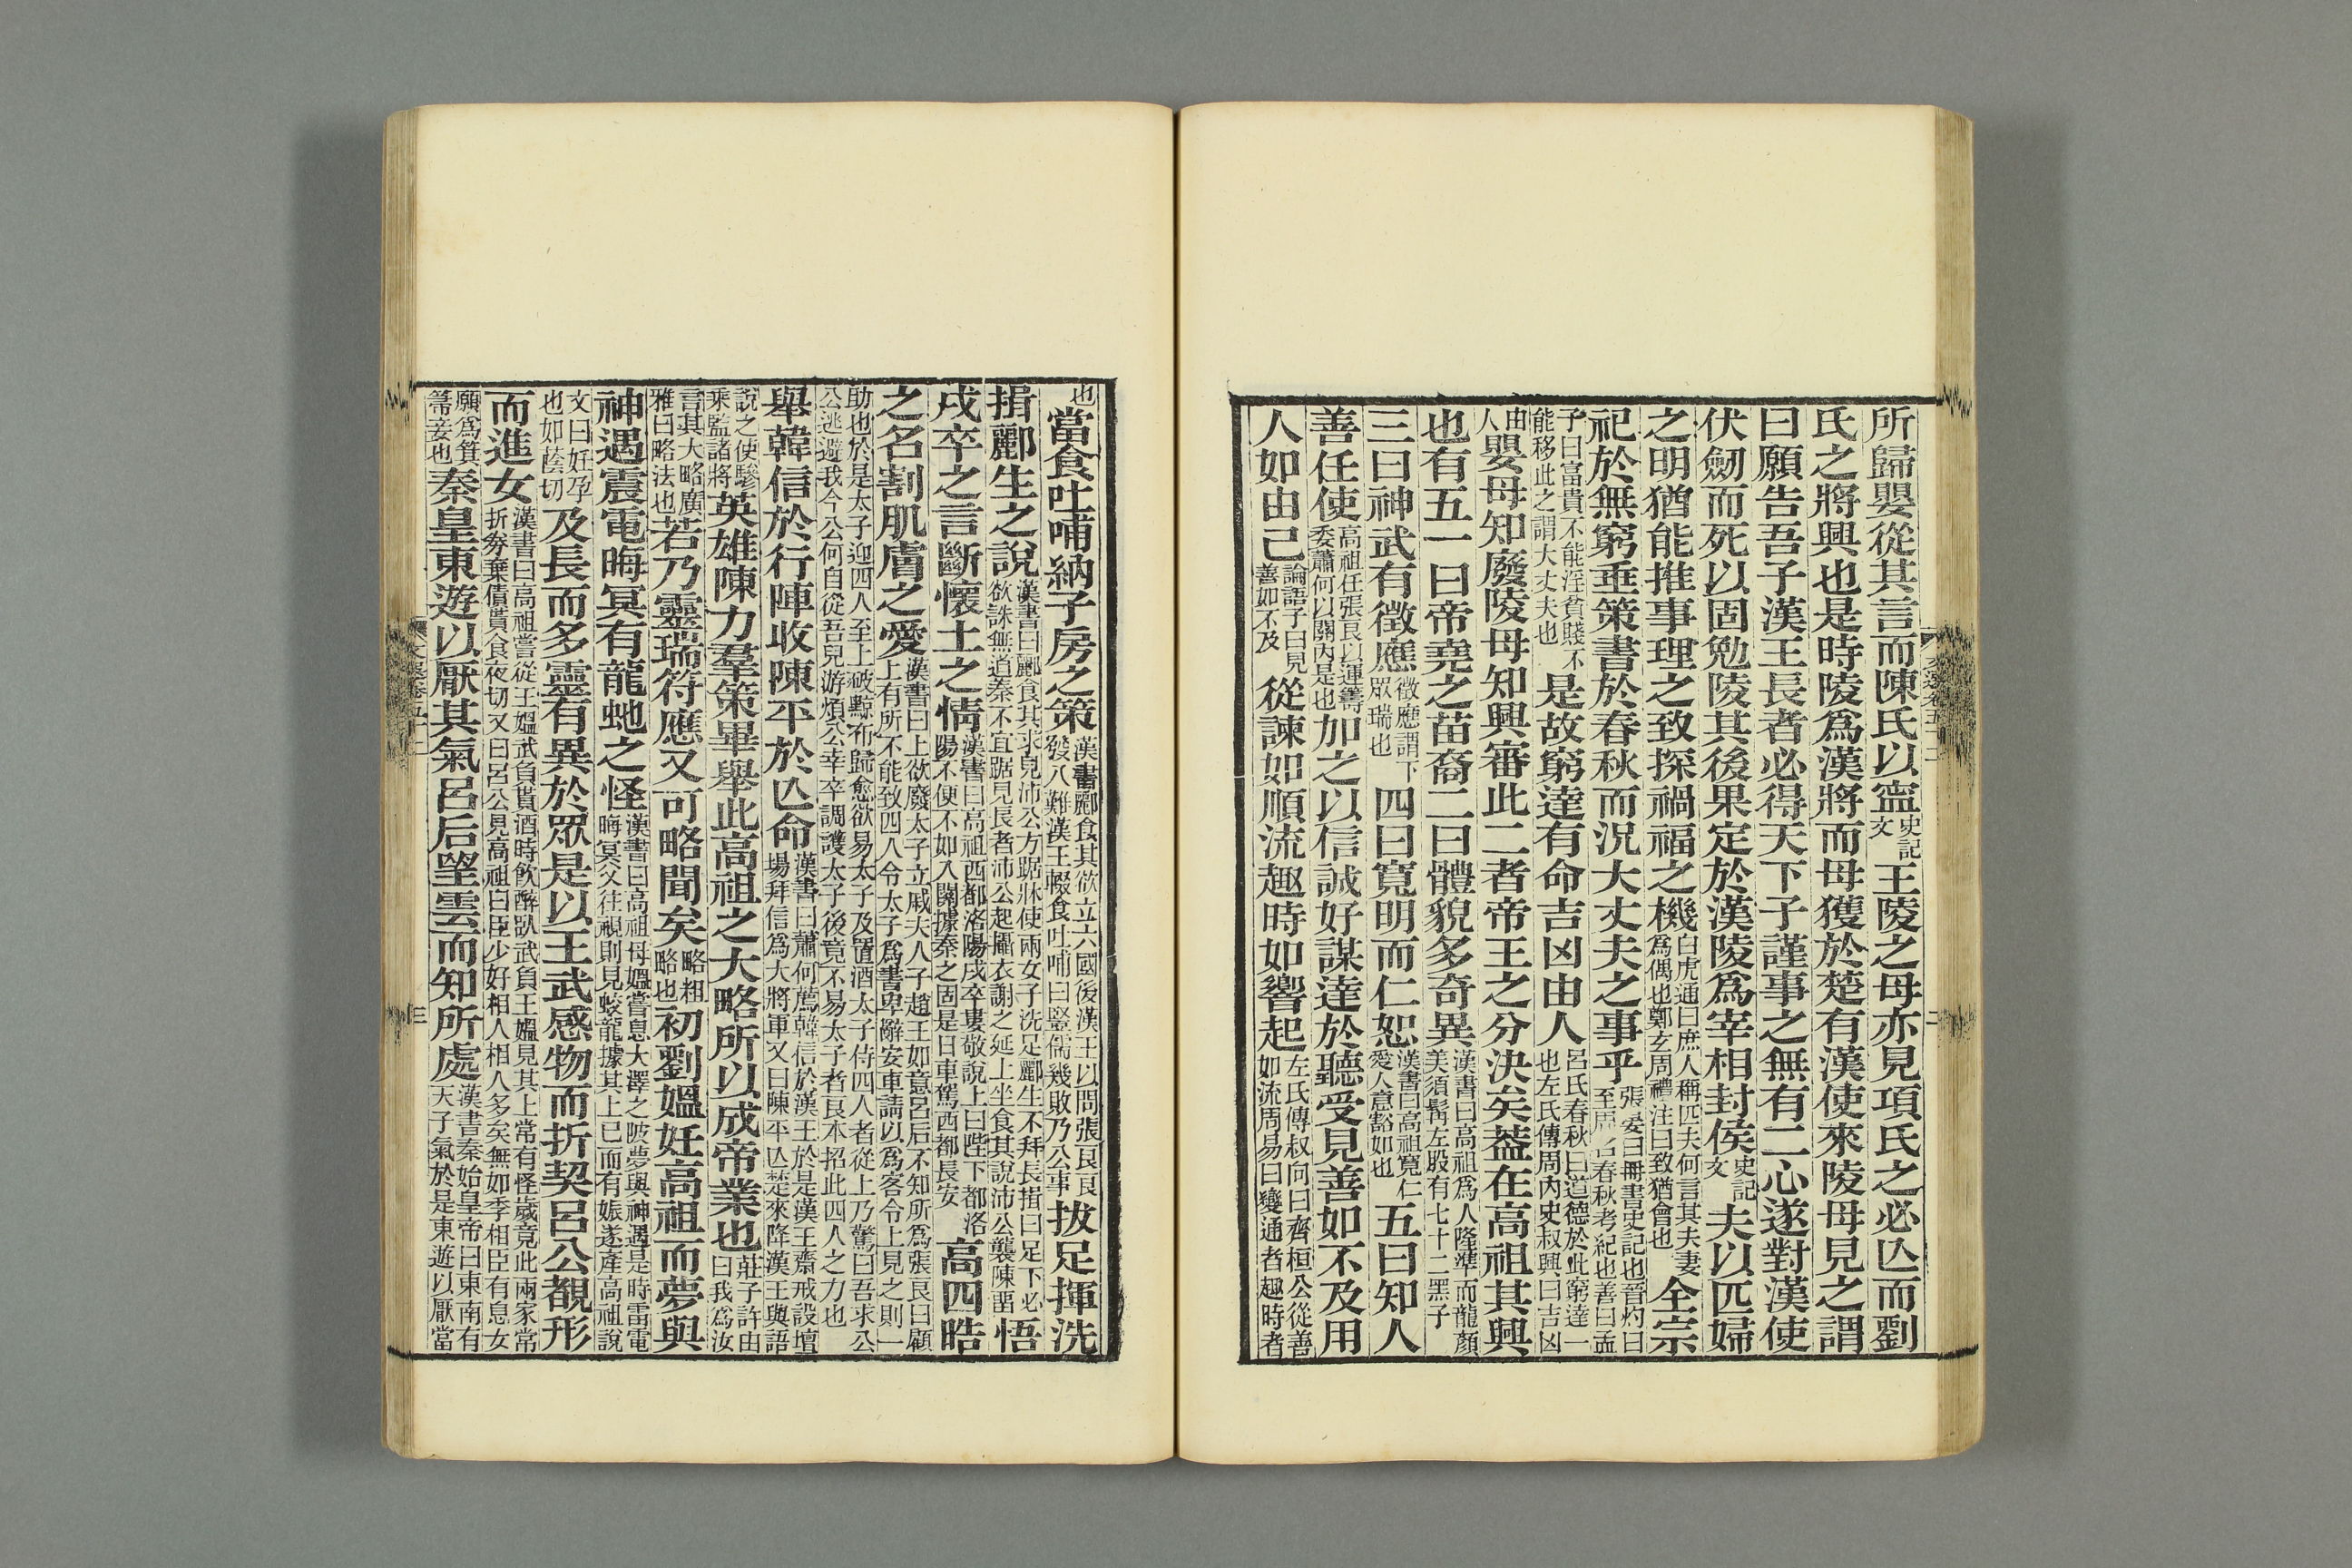 所歸嬰從其言而陳氏以寍史記文王陵之母亦見項氏之必亾而劉
氏之將興也是時陵爲漢將而母獲於楚有漢使來陵母見之謂
曰願告吾子漢王長者必得天下子謹事之無有二心遂對漢使
伏劒而死以固勉陵其後果定於漢陵爲宰相封侯史記文夫以匹婦
之明猶能推事理之致探禍福之機白虎通曰庶人稱匹夫何言其夫妻爲偶也鄭玄周禮注曰致猶會也全宗
祀於無窮垂策書於春秋而況大丈夫之事乎張晏曰冊書史記也晉灼曰春秋考紀也善曰孟
子曰富貴不能淫貧賤不能移此之謂大丈夫也是故窮達有命吉凶由人呂氏春秋曰道德於此窮達一也左氏傳周內史叔興曰吉凶
由人嬰母知廢陵母知興審此二者帝王之分決矣葢在高祖其興
也有五一曰帝堯之苗裔二曰體貌多奇異漢書曰高祖爲人隆準而龍顏美須髯左股有七十二黑子
三曰神武有徵應徵應謂下眾瑞也四曰寬明而仁恕漢書曰高祖寬仁愛人意豁如也五曰知人
善任使高祖任張良以運籌委蕭何以關內是也加之以信誠好謀達於聽受見善如不及用
人如由己論語子曰見善如不及從諫如順流趣時如響起左氏傳叔向曰齊桓公從善如流周易曰變通者趣時者
也當食吐哺納子房之策漢書酈食其欲立六國後漢王以問張良良發八難漢王輟食吐哺曰豎儒幾敗乃公事拔足揮洗
揖酈生之說漢書曰酈食其求見沛公方踞牀使兩女子洗足酈生不拜長揖曰足下必欲誅無道秦不宜踞見長者沛公起攝衣謝之延上坐食其說沛公襲陳畱悟
戍卒之言斷懷土之情漢書曰高祖西都洛陽戍卒婁敬說上曰陛下都洛陽不便不如入關據秦之固是日車駕西都長安高四皓
之名割肌膚之愛漢書曰上欲廢太子立戚夫人子趙王如意呂后不知所爲張良曰顧上有所不能致四人令太子爲書卑辭安車請以爲客令上見之則一
助也於是太子迎四人至上破黥布歸愈欲易太子及置酒太子侍四人者從上乃驚曰吾求公公逃避我今公何自從吾兒游煩公幸卒調護太子後竟不易太子者良本招此四人之力也
舉韓信於行陣收陳平於亾命漢書曰蕭何薦韓信於漢王於是漢王齋戒設壇場拜信爲大將軍又曰陳平亾楚來降漢王與語
說之使驂乘監諸將英雄陳力羣策畢舉此高祖之大略所以成帝業也莊子許由曰我爲汝
言其大略廣雅曰略法也若乃靈瑞符應又可略聞矣略粗略也初劉媼妊高祖而夢與
神遇震電晦冥有龍虵之怪漢書曰高祖母媼嘗息大澤之陂夢與神遇是時雷電晦冥父往視則見蛟龍據其上已而有娠遂產高祖說
文曰妊孕也如蔭切及長而多靈有異於眾是以王武感物而折契呂公覩形
而進女漢書曰高祖嘗從王媼武負貰酒時飲醉臥武負王媼見其上常有怪歲竟此兩家常折券棄債貰食夜切又曰呂公見高祖曰臣少好相人相人多矣無如季相臣有息女
願爲箕箒妾也秦皇東遊以厭其氣呂后望雲而知所處漢書秦始皇帝曰東南有天子氣於是東遊以厭當
三
二